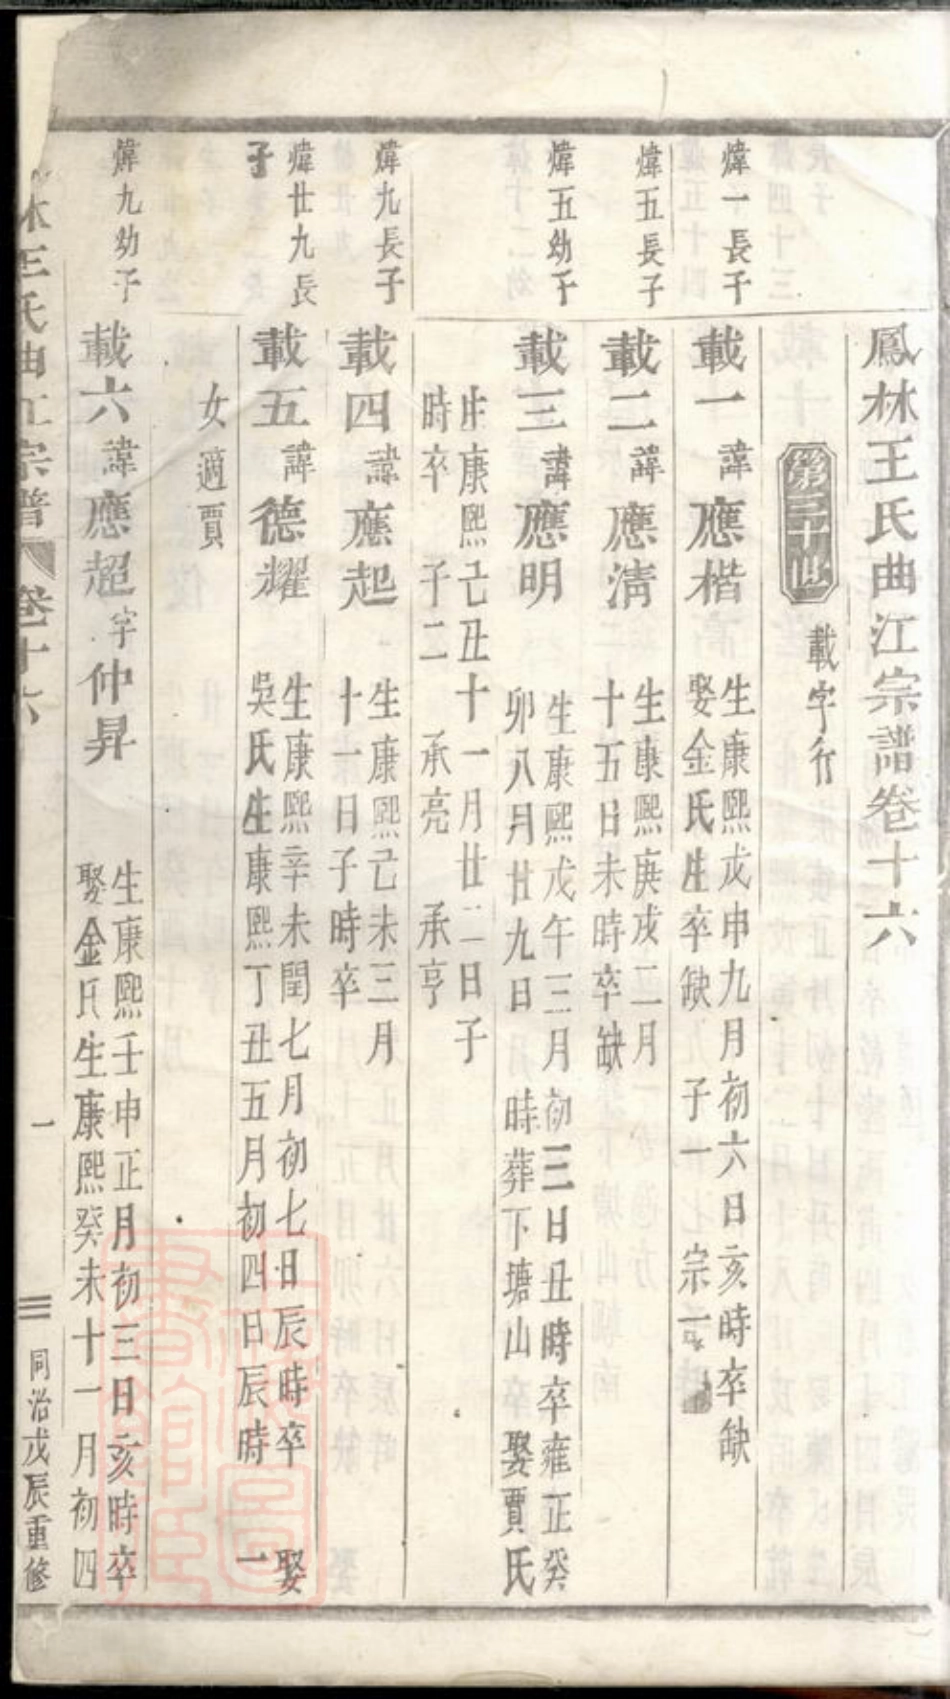 鳳林王氏曲江宗譜卷十六
第三十世
載字行
煒一長子
載一諱應楷
生康熙戊申九月初六日亥時卒缺
娶金氏生卒缺 子一 宗一
煒五長子
載二諱應淸
生康熙庚戌二月
十五日未時卒缺
煒五幼子
載三諱應明
生康熙戊午三月初三日丑時卒雍正癸
卯八月廿九日 時葬下塘山 娶賈氏
生康熙己丑十一月廿二日子
時卒 子二 承亮 承亨
煒九長子
載四諱應起
生康熙己未三月
十一日子時卒
煒廿九長
子
載五諱德耀
生康熙辛未閏七月初七日辰時卒 娶
吳氏生康熙丁丑五月初四日辰時 一
女適賈
煒九幼子
載六諱應超字仲昇
生康熙壬申正月初三日亥時卒
娶金氏生康熙癸未十一月初四
林王氏曲江宗譜 卷十六 一 同治戊辰重修